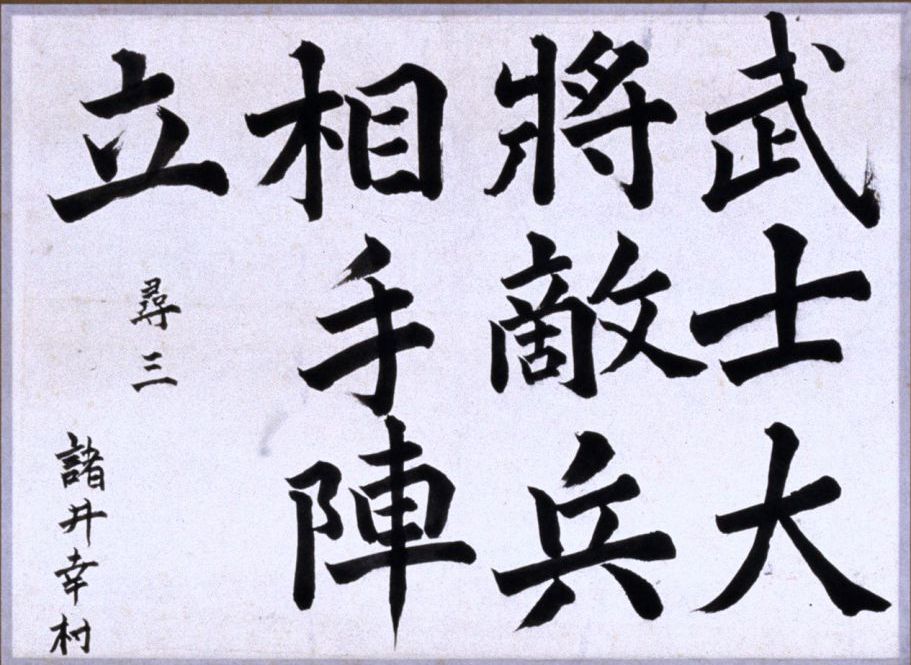 武士大
將敵兵
相手陣
立
尋三
諸井幸村